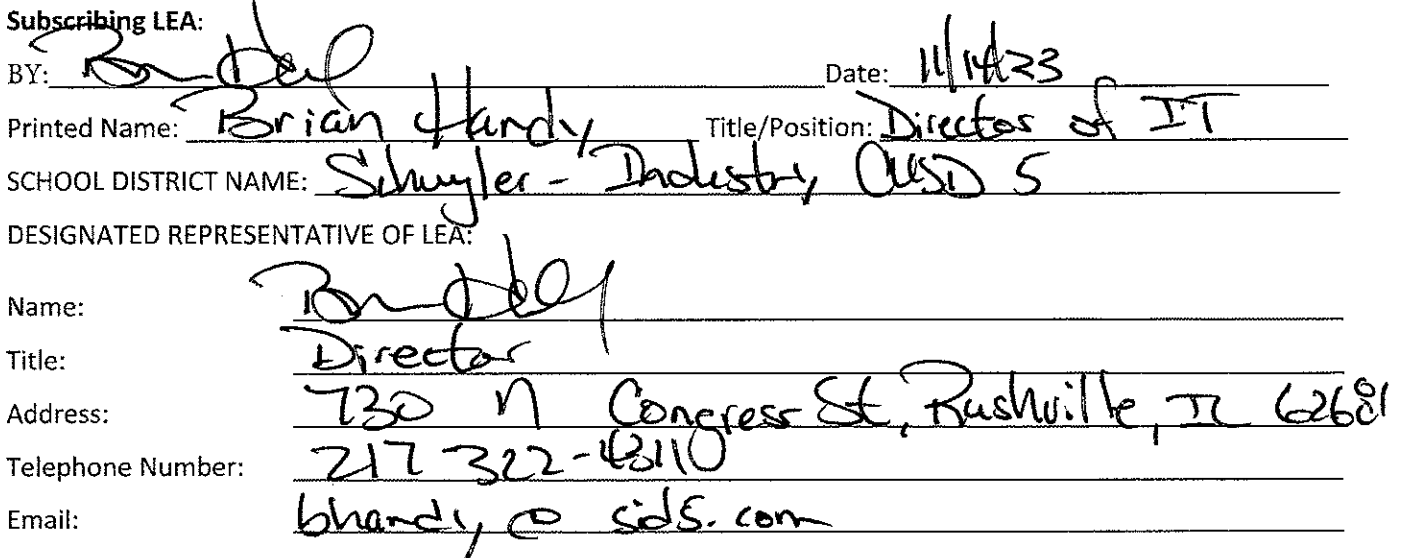 Subscribing LEA:
BY: Date: 11/14/23
Printed Name: Brian Hardy Title/Position: Director of IT
SCHOOL DISTRICT NAME: Schuyler-Industry CUSD 5
DESIGNATED REPRESENTATIVE OF LEA:
Name:
Title: Director
Address: 730 N Congress St, Rushville, IL 62681
Telephone Number: 217 322-
Email: bhandy@sid5.com